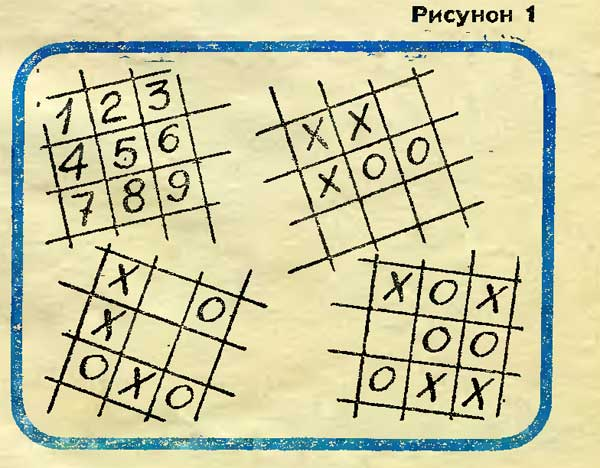 Рисунок 1
1 2 3
4 5 6
7 8 9
X X
X O O
X O
X
O X O
X O X
O O
O X X